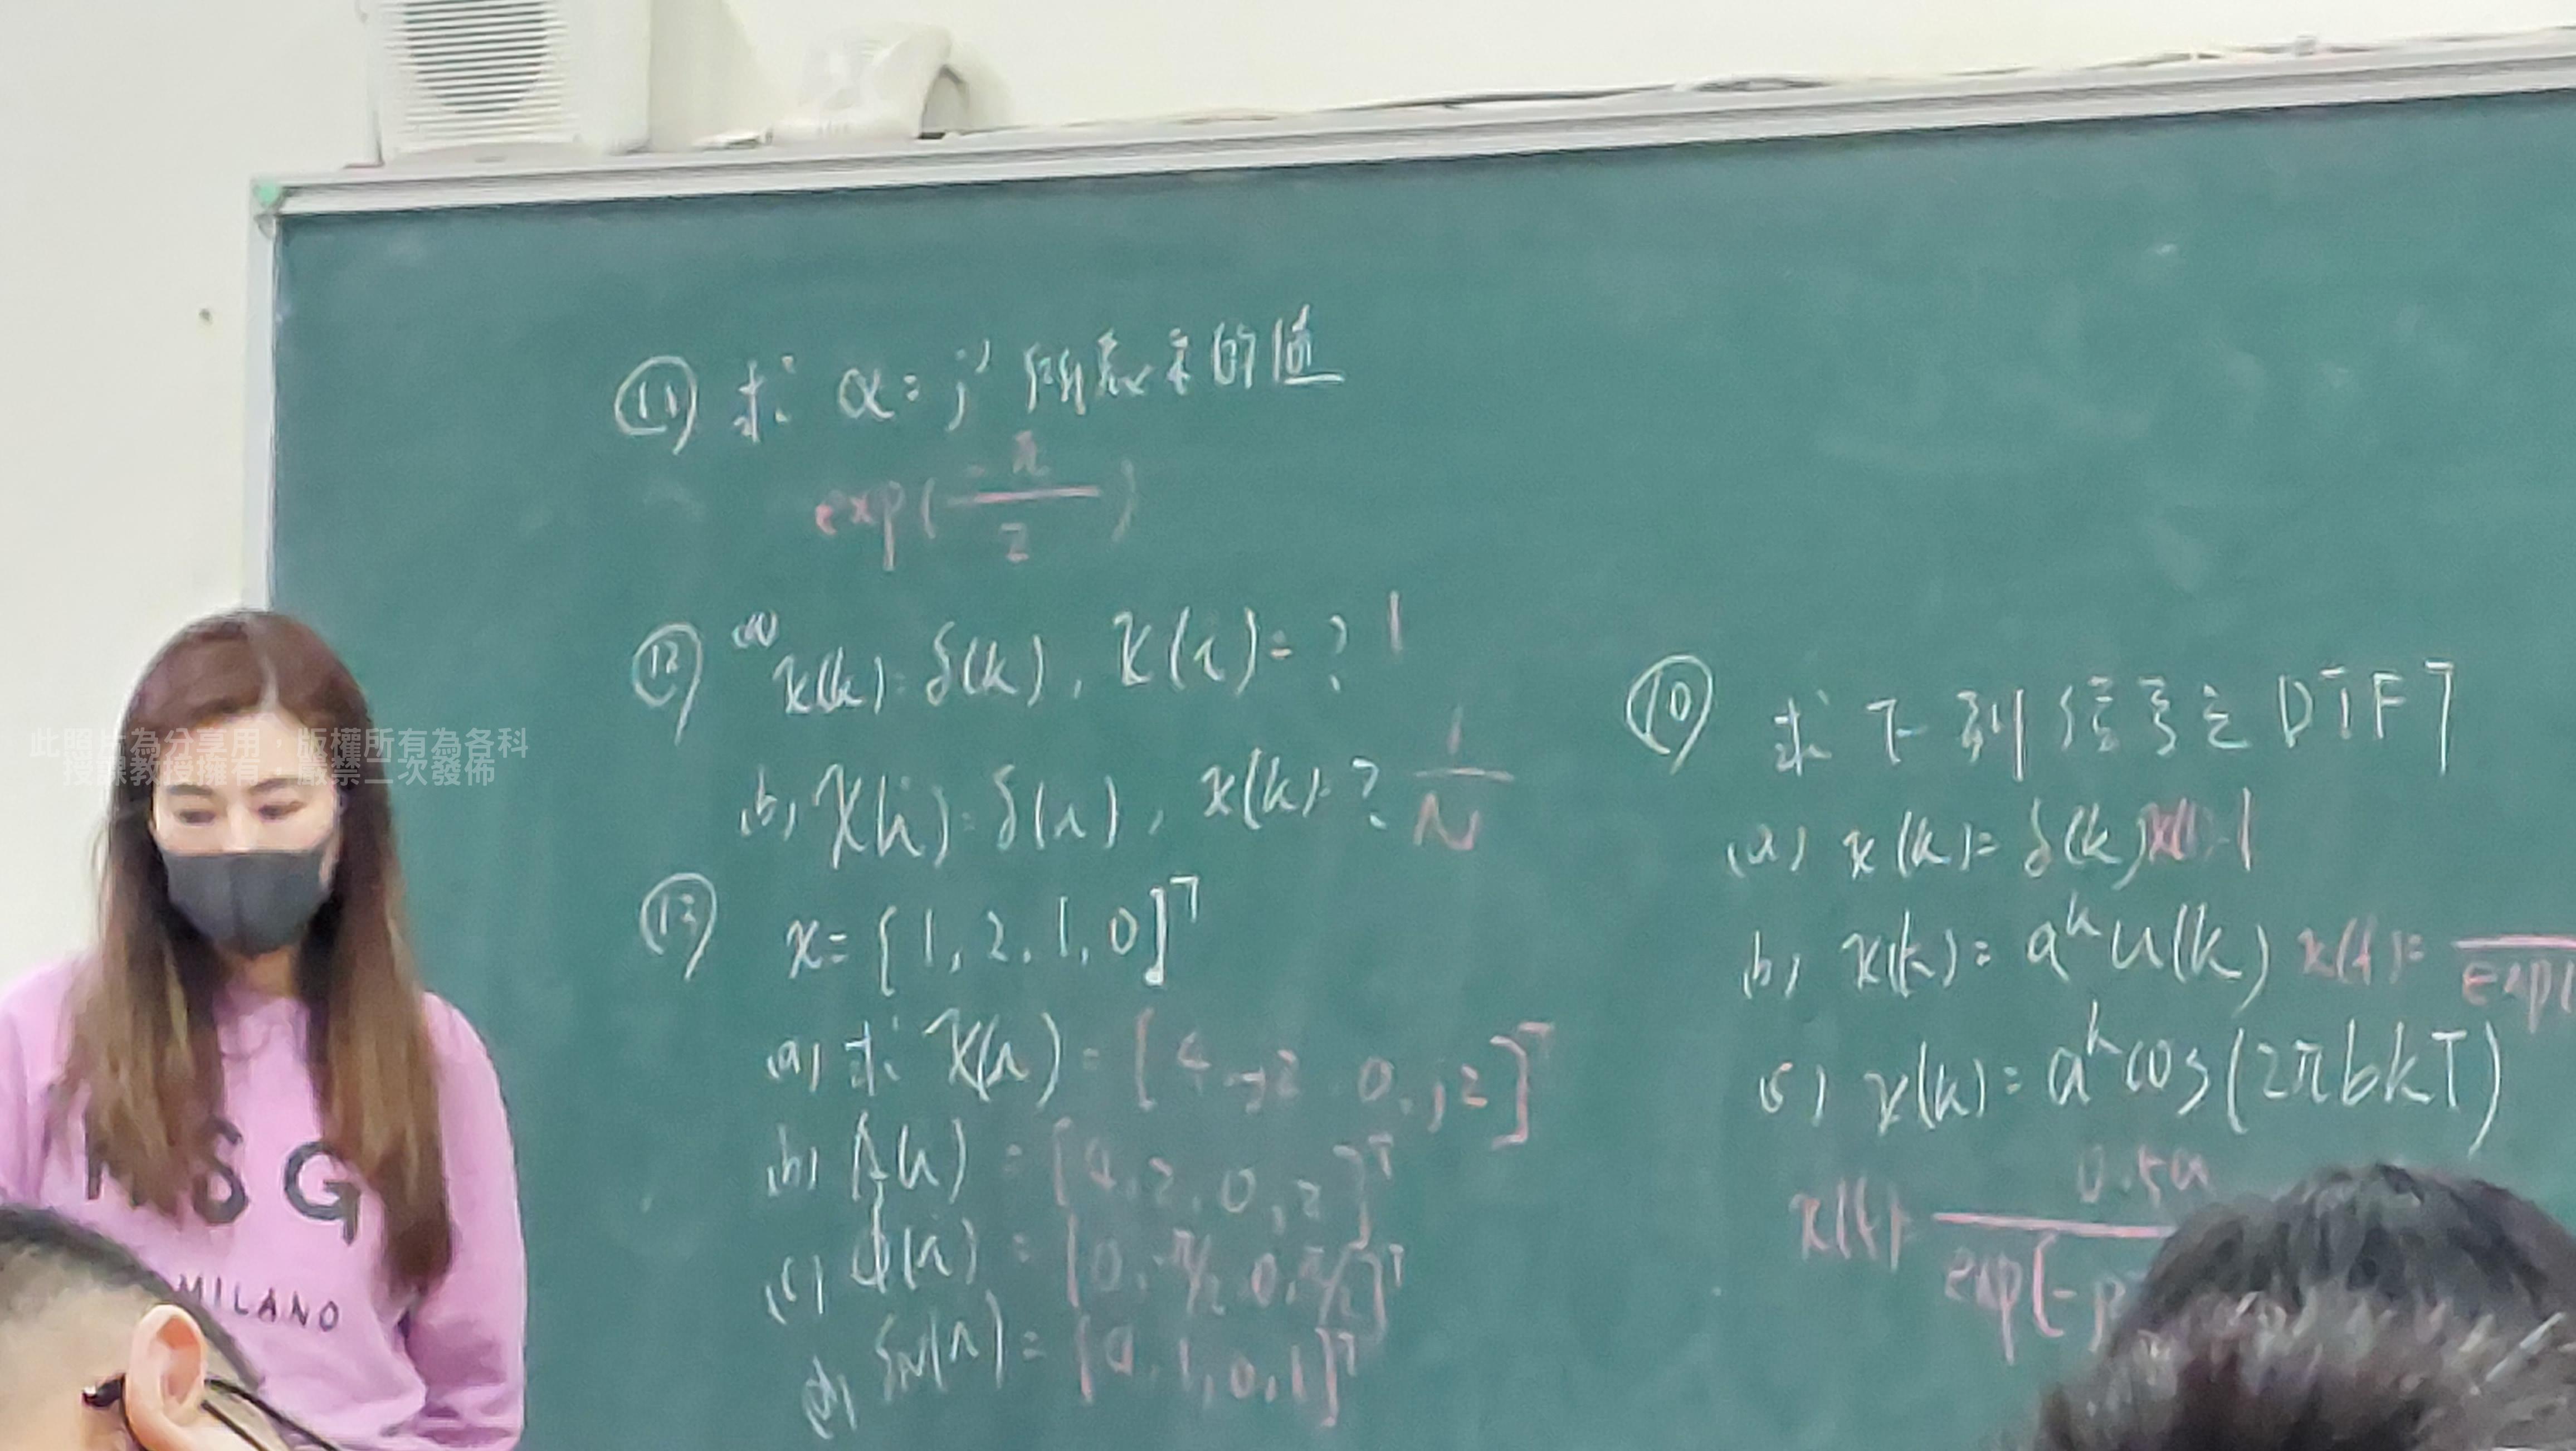 ⑪ 求 α = j^j 所表示的值
exp(-π/2)
⑫ (a) x(k) = δ(k), X(i) = ? 1
(b) X(i) = δ(i), x(k) = ? 1/N
⑬ x = [1, 2, 1, 0]^T
(a) 求 X(i) = [4, -j2, 0, j2]^T
(b) A(i) = [4, 2, 0, 2]^T
(c) φ(i) = [0, -π/2, 0, π/2]^T
(d) S_N(i) = [4, 1, 0, 1]^T
⑩ 求下列信号之 DTFT
(a) x(k) = δ(k) X(f) = 1
(b) x(k) = a^k u(k) X(f) =
exp(
(c) x(k) = a^k cos(2πbkT)
X(f) =
0.5a
exp(-j
此照片為分享用，版權所有為各科
授課教授擁有，嚴禁二次發佈
MSG
MILANO